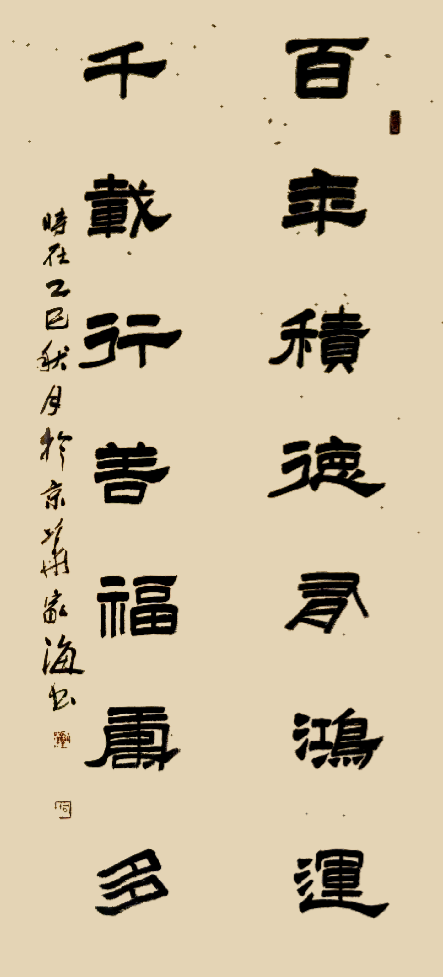 百年積德有鴻運
千載行善福多
時在乙巳秋月於京華家海书